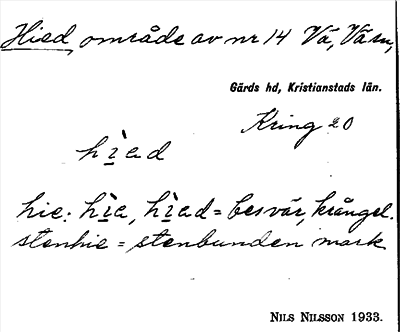 Hied, område av nr 14 Vä, Väsm,
Gärds hd, Kristianstads län.
Kring 20
hìed
hie: hìe, hìed = besvär, krångel.
stenhie = stenbunden mark
NILS NILSSON 1933.